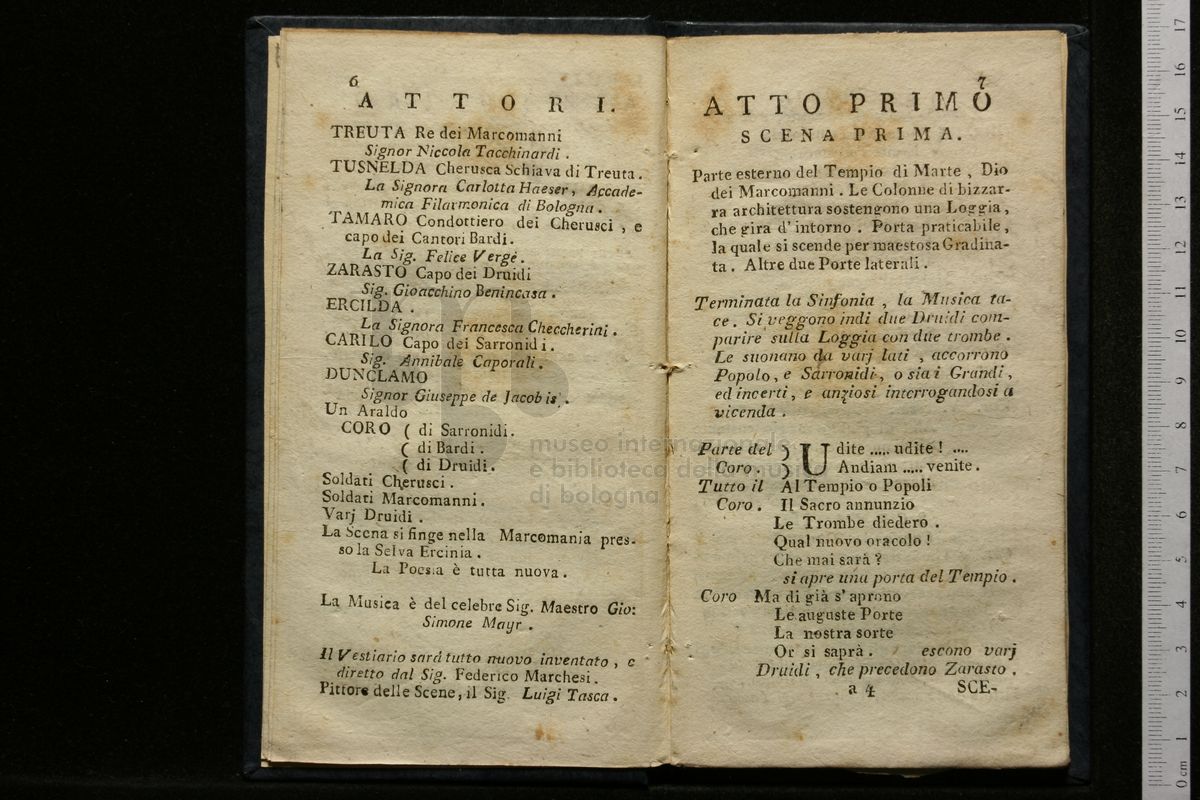 6
ATTORI.
TREUTA Re dei Marcomanni
Signor Niccola Tacchinardi.
TUSNELDA Cherusca Schiava di Treuta.
La Signora Carlotta Haeser, Accade-
mica Filarmonica di Bologna.
TAMARO Condottiero dei Cherusci, e
capo dei Cantori Bardi.
La Sig. Felice Vergé.
ZARASTO Capo dei Druidi
Sig. Gioacchino Benincasa.
ERCILDA.
La Signora Francesca Checcherini.
CARILO Capo dei Sarronidi.
Sig. Annibale Caporali.
DUNCLAMO
Signor Giuseppe de Jacobis.
Un Araldo
CORO ( di Sarronidi.
( di Bardi.
( di Druidi.
Soldati Cherusci.
Soldati Marcomanni.
Varj Druidi.
La Scena si finge nella Marcomania pres-
so la Selva Ercinia.
La Poesia è tutta nuova.
La Musica è del celebre Sig. Maestro Gio:
Simone Mayr.
Il Vestiario sarà tutto nuovo inventato, e
diretto dal Sig. Federico Marchesi.
Pittore delle Scene, il Sig. Luigi Tasca.
7
ATTO PRIMO
SCENA PRIMA.
Parte esterno del Tempio di Marte, Dio
dei Marcomanni. Le Colonne di bizzar-
ra architettura sostengono una Loggia,
che gira d'intorno. Porta praticabile,
la quale si scende per maestosa Gradina-
ta. Altre due Porte laterali.
Terminata la Sinfonia, la Musica ta-
ce. Si veggono indi due Druidi com-
parire sulla Loggia con due trombe.
Le suonano da varj lati, accorrono
Popolo, e Sarronidi, o sia i Grandi,
ed incerti, e anziosi interrogandosi a
vicenda.
Parte del ) Udite ..... udite! ....
Coro. ) Andiam ..... venite.
Tutto il Al Tempio o Popoli
Coro. Il Sacro annunzio
Le Trombe diedero.
Qual nuovo oracolo!
Che mai sarà?
si apre una porta del Tempio.
Coro Ma di già s'aprono
Le auguste Porte
La nostra sorte
Or si saprà. escono varj
Druidi, che precedono Zarasto.
a 4 SCE-
museo internazionale
e biblioteca della musica
di bologna
0 cm 1 2 3 4 5 6 7 8 9 10 11 12 13 14 15 16 17